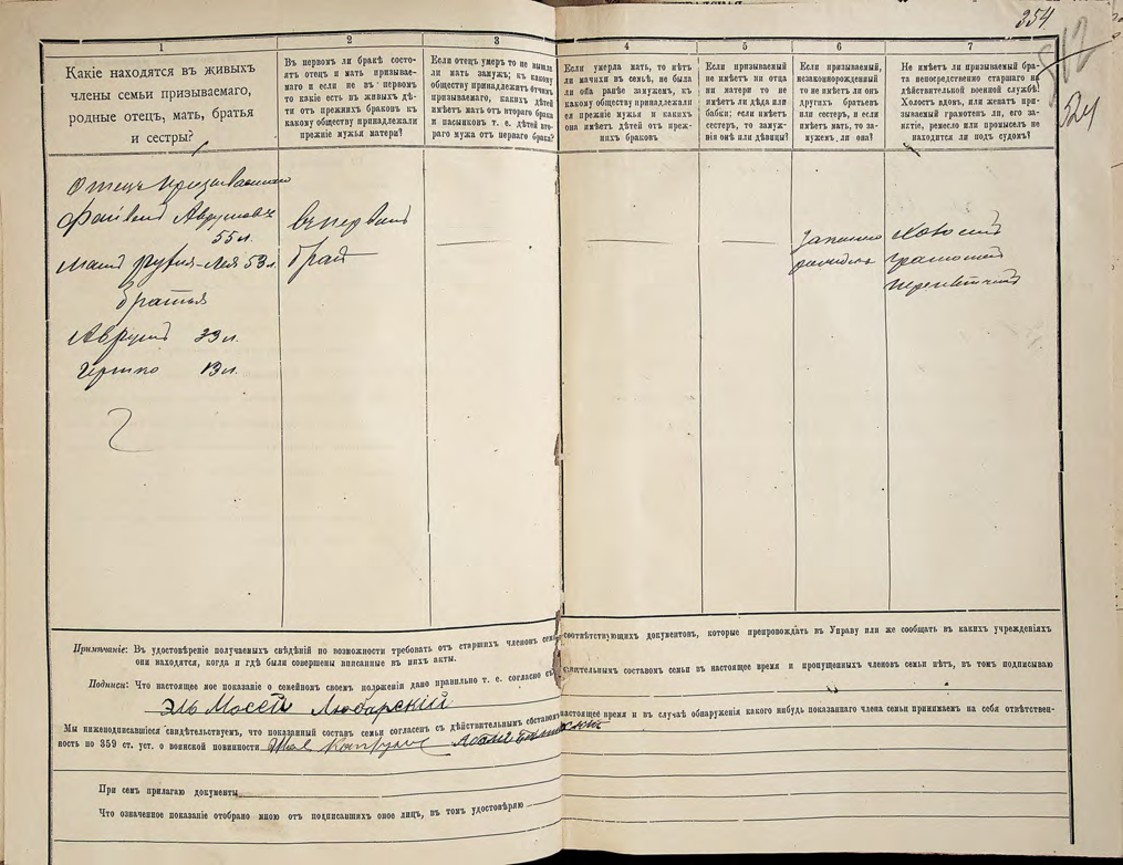 354
812
524
1
2
3
4
5
6
7
Какіе находятся въ живыхъ
члены семьи призываемаго,
родные отецъ, мать, братья
и сестры?
Въ первомъ ли бракѣ состо-
ятъ отецъ и мать призывае-
маго и если не въ первомъ
то какіе есть въ живыхъ дѣ-
ти отъ прежнихъ браковъ къ
какому обществу принадлежали
прежніе мужья матери?
Если отецъ умеръ то не вышла
ли мать замужъ; къ какому
обществу принадлежитъ отчимъ
призываемаго, какихъ дѣтей
имѣетъ мать отъ втораго брака
и пасынковъ т. е. дѣтей вто-
раго мужа отъ перваго брака?
Если умерла мать, то нѣтъ
ли мачихи въ семьѣ, не была
ли она ранѣе замужемъ, къ
какому обществу принадлежали
ея прежніе мужья и какихъ
она имѣетъ дѣтей отъ преж-
нихъ браковъ
Если призываемый
не имѣетъ ни отца
ни матери то не
имѣетъ ли дѣда или
бабки; если имѣетъ
сестеръ, то замуж-
нія онѣ или дѣвицы?
Если призываемый,
незаконорожденный
то не имѣетъ ли онъ
другихъ братьевъ
или сестеръ, и если
имѣетъ мать, то за-
мужемъ ли она?
Не имѣетъ ли призываемый бра-
та непосредственно старшаго на
дѣйствительной военной службѣ?
Холостъ вдовъ, или женатъ при-
зываемый грамотенъ ли, его за-
нятіе, ремесло или промыселъ не
находится ли подъ судомъ?
Отецъ призываемаго
Файвель Аврумовъ
55 л.
мать Руфия-Лея 53 л.
братья
Аврумъ 33 л.
Гершко 13 л.
въ первомъ
бракѣ
законно
рожденъ
холостъ
грамотный
переплетчикъ
Примѣчаніе: Въ удостовѣреніе получаемыхъ свѣдѣній по возможности требовать отъ старшихъ членовъ семьи соотвѣтствующихъ документовъ, которые препровождать въ Управу или же сообщать въ какихъ учрежденіяхъ
они находятся, когда и гдѣ были совершены вписанные въ нихъ акты.
Подписи: Что настоящее мое показаніе о семейномъ своемъ положеніи дано правильно т. е. согласно съ дѣйствительнымъ составомъ семьи въ настоящее время и пропущенныхъ членовъ семьи нѣтъ, въ томъ подписываю
Эль Мосей Любарскій
Мы нижеподписавшіеся свидѣтельствуемъ, что показанный составъ семьи согласенъ съ дѣйствительнымъ составомъ настоящее время и въ случаѣ обнаруженія какого нибудь показаннаго члена семьи принимаемъ на себя отвѣтствен-
ность по 359 ст. уст. о воинской повинности
При семъ прилагаю документы
Что означенное показаніе отобрано мною отъ подписавшихъ оное лицъ, въ томъ удостовѣряю